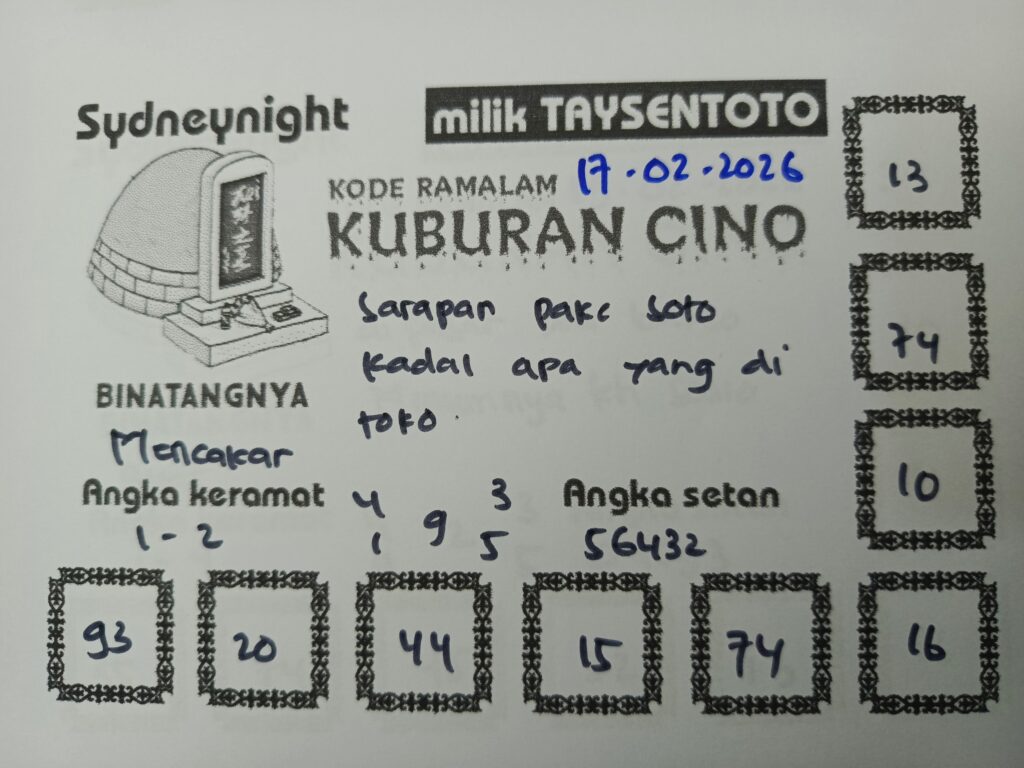 Sydneynight
milik TAYSENTOTO
KODE RAMALAM 17.02.2026
KUBURAN CINO
Sarapan pake soto
kadal apa yang di
toko.
BINATANGNYA
Mencakar
Angka keramat
1 - 2
4 3
9
1 5
Angka setan
56432
13
74
10
93 20 44 15 74 16